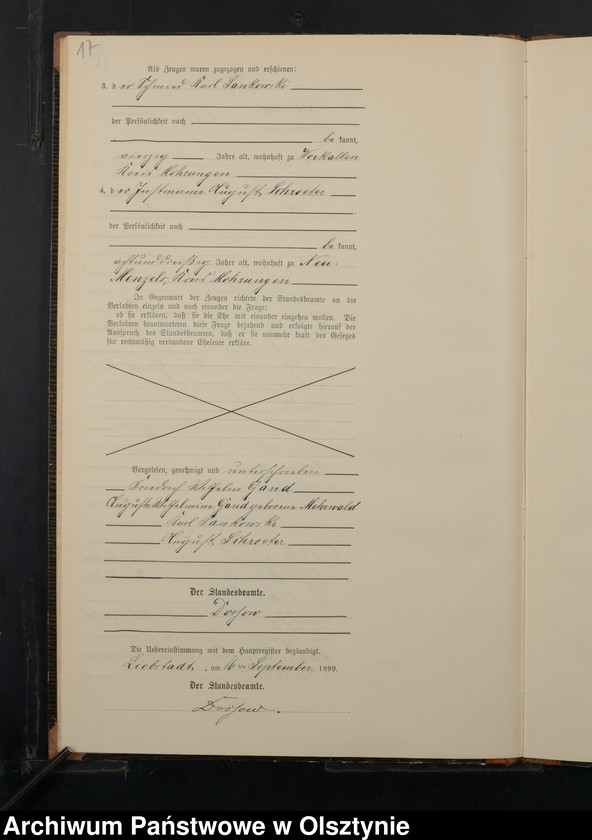 17
Als Zeugen waren zugezogen und erschienen:
3. der Schmied Karl Sankowski
der Persönlichkeit nach
bekannt,
vierzig Jahre alt, wohnhaft zu Workallen
Kreis Mohrungen
4. der Instmann August Schroeter
der Persönlichkeit nach
bekannt,
achtunddreißig Jahre alt, wohnhaft zu Neu-
Menzels, Kreis Mohrungen
In Gegenwart der Zeugen richtete der Standesbeamte an die
Verlobten einzeln und nach einander die Frage:
ob sie erklären, daß sie die Ehe mit einander eingehen wollen. Die
Verlobten beantworteten diese Frage bejahend und erfolgte hierauf der
Ausspruch des Standesbeamten, daß er sie nunmehr kraft des Gesetzes
für rechtmäßig verbundene Eheleute erkläre.
Vorgelesen, genehmigt und unterschrieben
Friedrich Wilhelm Gand
Auguste Wilhelmine Gand geborene Mohrwald
Karl Sankowski
August Schroeter
Der Standesbeamte.
Die Uebereinstimmung mit dem Hauptregister beglaubigt.
Liebstadt, am 16ten September 1899.
Der Standesbeamte.
Archiwum Państwowe w Olsztynie